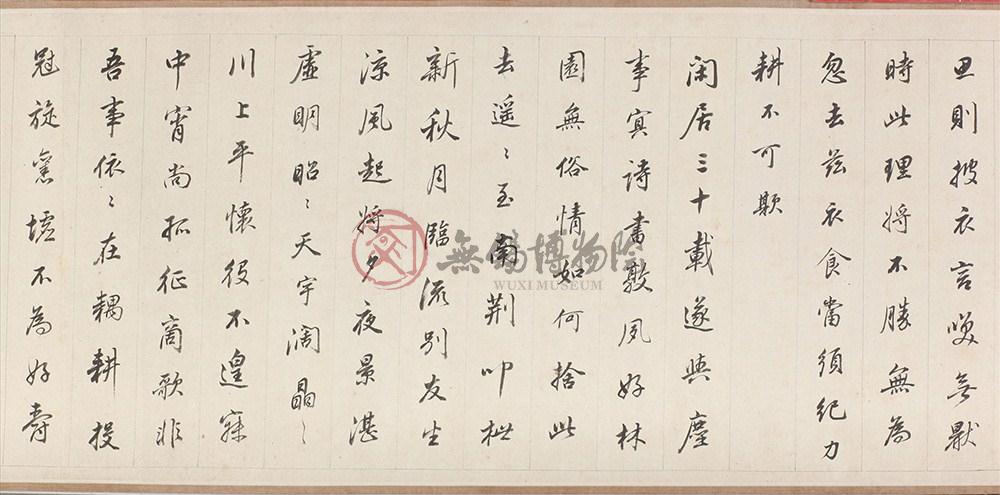 思則披衣言咲無厭
時此理將不勝無為
忽去茲衣食當須紀力
耕不可欺
閑居三十載遂與塵
事冥詩書敦夙好林
園無俗情如何捨此
去遥〻至南荆叩枻
新秋月臨流别友生
涼風起將夕夜景湛
虛明昭〻天宇闊晶〻
川上平懷役不遑寐
中宵尚孤征商歌非
吾事依〻在耦耕投
冠旋舊墟不為好爵
無錫博物院
WUXI MUSEUM